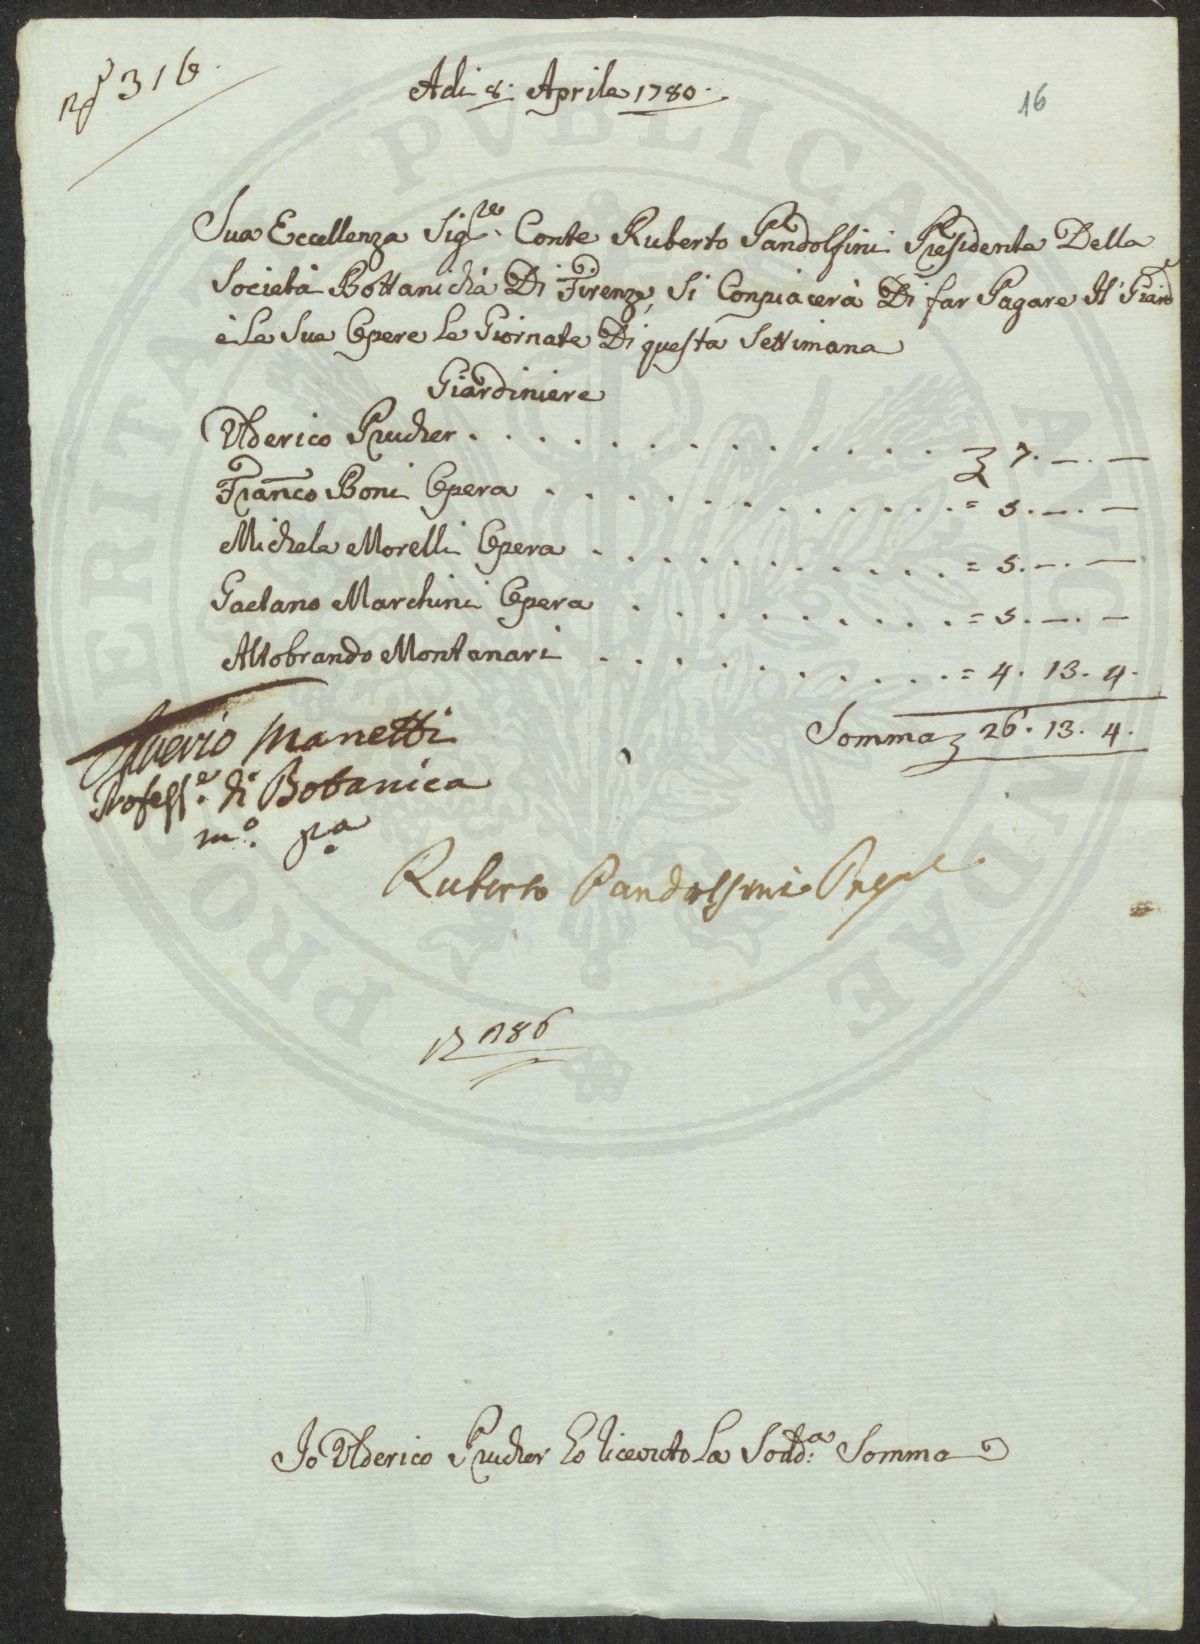 N° 316.
Adi 8. Aprile 1780.
16
Sua Eccellenza Sig.re Conte Ruberto Pandolfini Presidente Della
Società Bottanicha Di Firenze, Si Conpiacerà Di far Pagare Il Giard
e Le Sue Opere Le Giornate Di questa Settimana
Giardiniere
Ulderico Prucher . . . . . . . . . . . . . . 7. —. —
Franco Boni Opera . . . . . . . . . . . . = 5. —. —
Michele Morelli Opera . . . . . . . . . . . = 5. —. —
Gaetano Marchini Opera . . . . . . . . . . = 5. —. —
Altobrando Montanari . . . . . . . . . . . = 4. 13. 4.
Somma 26. 13. 4.
Saverio Manetti
Profess.e di Botanica
m.o p.a
Ruberto Pandolfini Pres
186
Io Ulderico Prucher ho riceuto La Sodd.a Somma
PRO VERITATE PVBLICAE VTILITATI